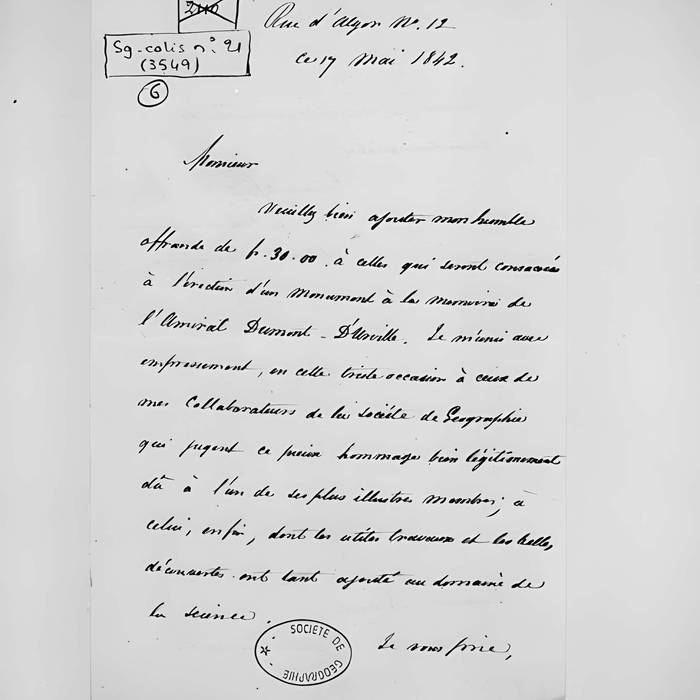 2110
Sg-colis n° 21
(3549)
6
Rue d'Alger N°. 12
ce 17 Mai 1842.
Monsieur
Veuillez bien ajouter mon humble
offrande de fr. 30.00. à celles qui seront consacrées
à l'érection d'un Monument à la memoire de
l'Amiral Dumont-D'Urville. Je m'unis avec
empressement, en cette triste occasion à ceux de
mes Collaborateurs de la Société de Géographie
qui jugent ce pieux hommage bien légitimement
dû à l'un de ses plus illustres membres; à
celui, enfin, dont les utiles travaux et les belles,
découvertes ont tant ajouté au domaine de
la science.
SOCIÉTÉ DE GEOGRAPHIE
Je vous prie,